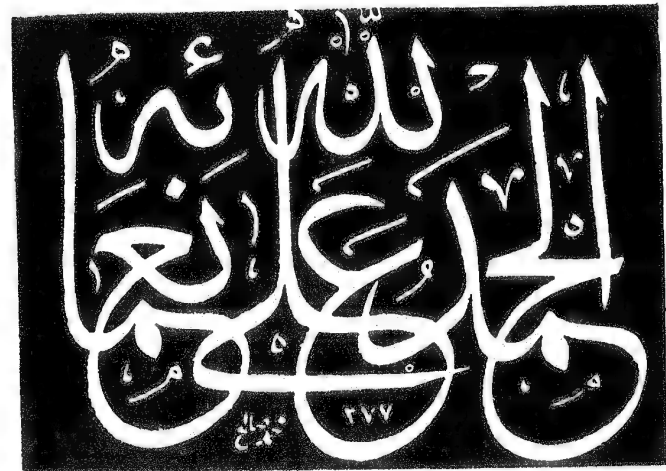 الحمد لله على نعمائه
٣٧٧